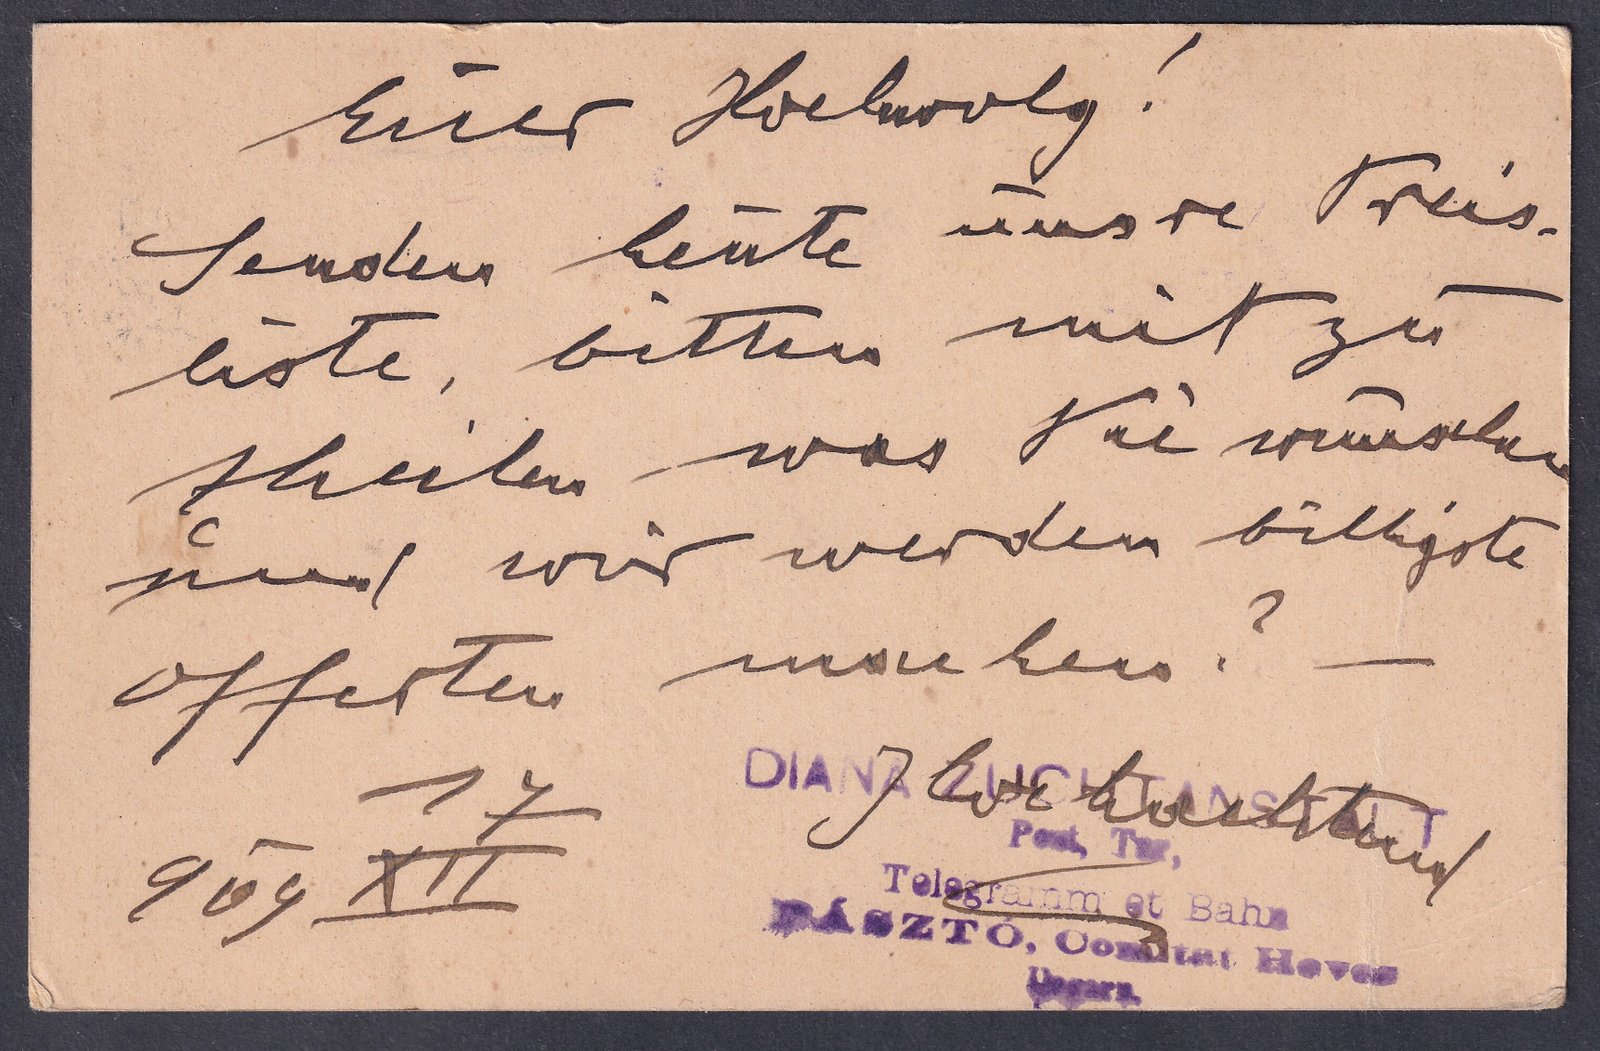 Euer Hochwolg!
Senden heute unsre Preis-
liste, bitten mit zu
theilen was Sie wünschen
und wir werden billigste
Offerten machen? —
17
909 XII
Hochachtend
DIANA ZUCHTANSTALT
Post, 
Telegramm et Bahn
PÁSZTÓ, Comitat Heves
Ungarn.